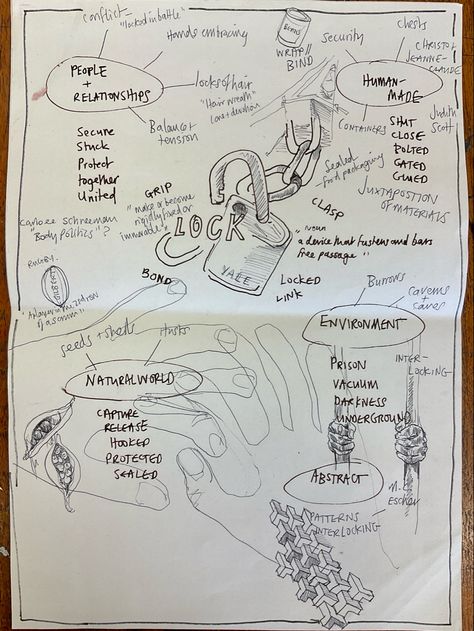 Conflict-
"locked in battle"
Hands embracing
PEOPLE
+
RELATIONSHIPS
locks of hair
"Hair wreath"
Love + devotion
Balance +
tension
Secure
Stuck
Protect
together
United
BEANS
WRAP//
BIND
security
chests
CHRISTO +
JEANNE-
CLAUDE
HUMAN-
MADE
CONTAINERS
Judith
Scott
SHUT
CLOSE
BOLTED
GATED
GLUED
JUXTAPOSITION
OF MATERIALS
Sealed
-food packaging
GRIP
"make or become
rigidly fixed or
immovable"
LOCK
CLASP
"noun
a device that fastens and bars
free passage"
YALE
LOCKED
LINK
BOND
carolee schneeman
"Body politics"?
RUGBY.
GILBERT
of a scrum"
seeds + sheds
Husks
NATURAL WORLD
CAPTURE
RELEASE
HOOKED
PROTECTED
SEALED
Burrows
caverns +
caves
ENVIRONMENT
PRISON
VACUUM
DARKNESS
UNDERGROUND
INTER-
LOCKING
ABSTRACT
M.C
Escher
PATTERNS
INTERLOCKING